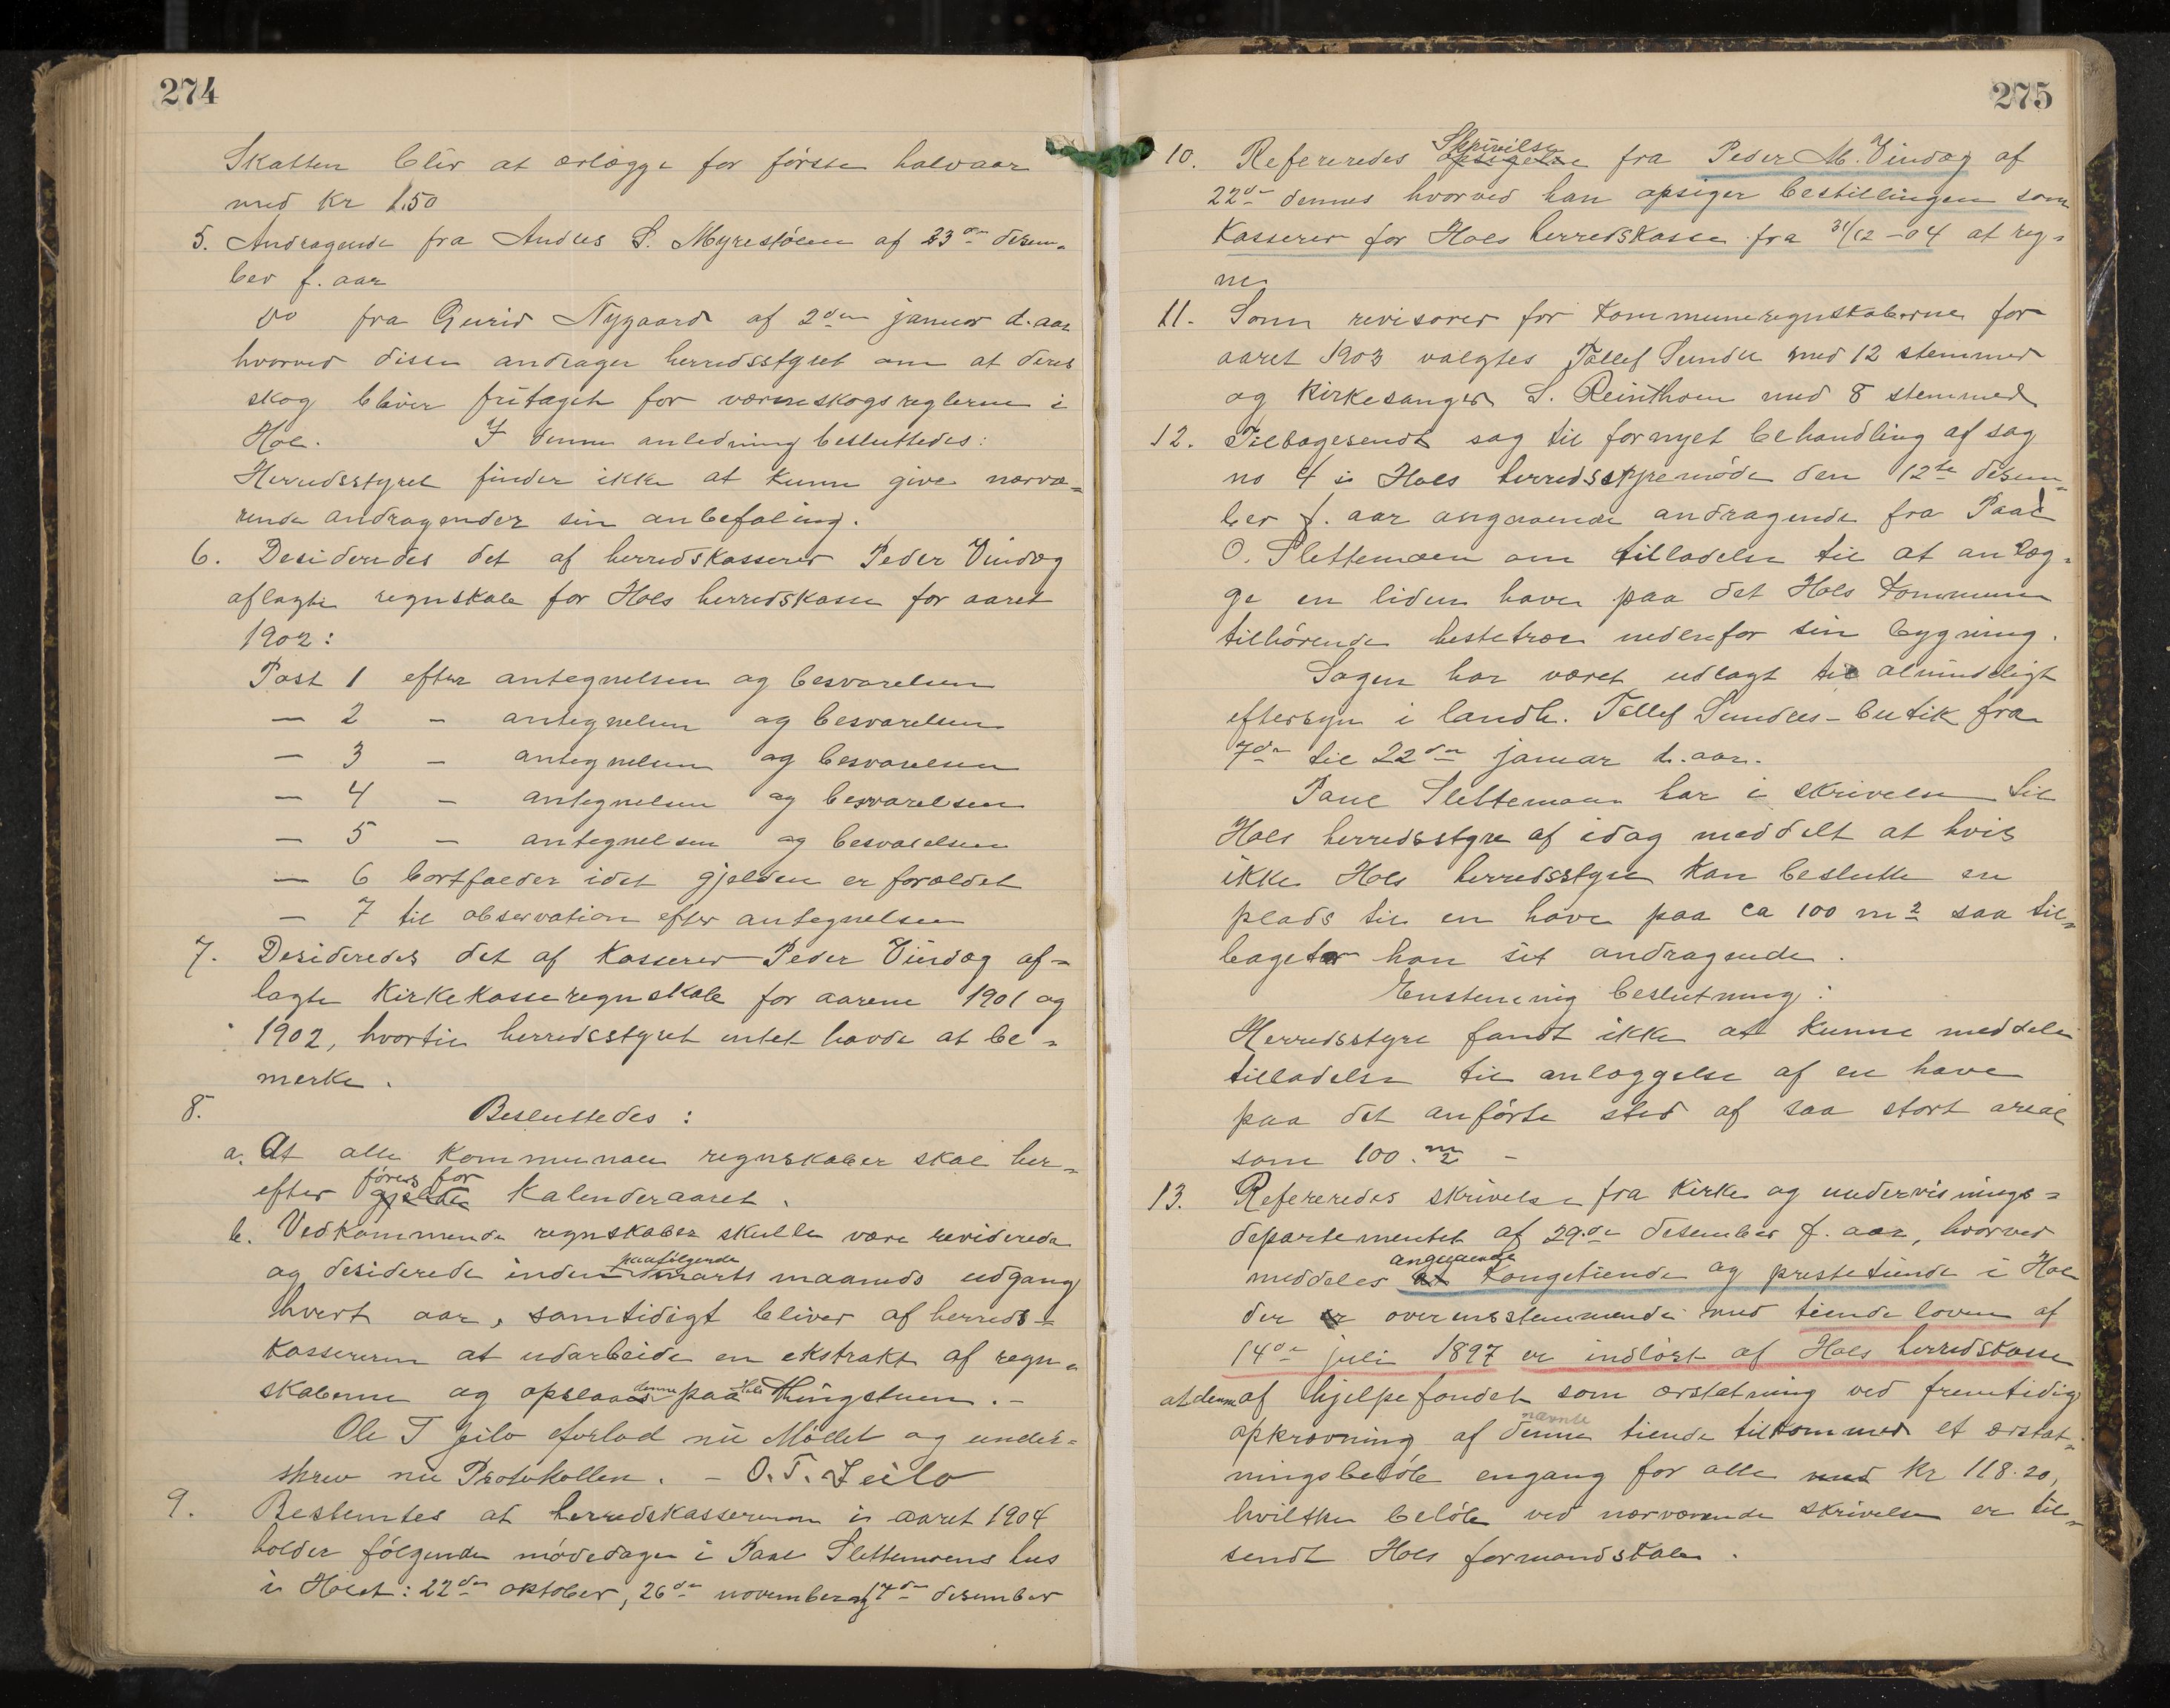 274
Skatten bliv at erlægge for første halvaar
med kr 1.50
5. Andragende fra Andres S. Myrestölen af 23de desem-
ber f. aar
Do fra Gurid Nygaard af 2den januar d. aar
hvorved disse andrager herredsstyret om at deres
skog bliver fritaget for verneskogsreglerne i
Hol. I denne anledning besluttedes:
Herredsstyret finder ikke at kunne give nærvæ-
rende andragender sin anbefaling.
6. Desideredes det af herredskasserer Peder Vindæg
aflagte regnskab for Hols herredskasse for aaret
1902:
Post 1 efter antegnelsen og besvarelsen
— 2 - antegnelsen og besvarelsen
— 3 - antegnelsen og besvarelsen
— 4 - antegnelsen og besvarelsen
— 5 - antegnelsen og besvarelsen
— 6 bortfalder idet gjelden er forældet
— 7 til observation efter antegnelsen
7. Desideredes det af kasserer Peder Vindæg af-
lagte kirkekasseregnskab for aarene 1901 og
1902, hvortil herredsstyret intet havde at be-
merke.
8. Besluttedes:
a. At alle kommunale regnskaber skal her-
efter gjelder føres for kalenderaaret.
b. Vedkommende regnskaber skulle være reviderede
og desiderede inden paafølgende marts maaneds udgang
hvert aar, samtidigt bliver af herreds-
kassereren at udarbeide en ekstrakt af regn-
skaberne og opslaaes denne paa Hols Thingstuen. -
Ole T Jeilo forlod nu Mödet og under-
skrev nu Protokollen. - O. T. Jeilo
9. Bestemtes at herredskassereren i aaret 1904
holder følgende mødedage i Paal Slettemoens hus
i Holet: 22de oktober, 26de november og 17de desember
275
10. Refereredes opsigelse Skrivelse fra Peder M. Vindæg af
22de dennes hvorved han opsiger bestillingen som
kasserer for Hols herredskasse fra 31/12 -04 at reg-
ne
11. Som revisorer for kommuneregnskaberne for
aaret 1903 valgtes Tollef Sundre med 12 stemmer
og kirkesanger S. Reinthon med 8 stemmer
12. Tilbagesendt sag til fornyet behandling af sag
no 4 i Hols herredsstyremöde den 12te desem-
ber f. aar angaaende andragende fra Paal
O. Slettemoen om tilladelse til at anlæg-
ge en liden have paa det Hols kommune
tilhørende hestetræe nedenfor sin bygning.
Sagen har været udlagt til almindeligt
eftersyn i landh. Tollef Sundres butik fra
7de til 22de januar d. aar.
Paul Slettemoen har i skrivelse til
Hols herredsstyre af idag meddelt at hvis
ikke Hols herredsstyre kan beslutte en
plads til en have paa ca 100 m2 saa til-
bagetar han sit andragende.
Enstemmig beslutning:
Herredsstyre fandt ikke at kunne meddele
tilladelse til anlæggelse af en have
paa det anførte sted af saa stort areal
som 100 m2 -
13. Refereredes skrivelse fra kirke og undervisnings-
departementet af 29de desember f. aar, hvorved
meddeles at angaaende kongetiende og prestetiende i Hol
der er overensstemmende med tiendeloven af
14de juli 1897 er indløst af Hols herredskasse
at denne af hjelpefondet som erstatning ved fremtidig
opkrævning af denne nævnte tiende tilkommer et erstat-
ningsbeløb engang for alle med kr 118.20,
hvilket beløb ved nærværende skrivelse er til-
sendt Hols formandskab.